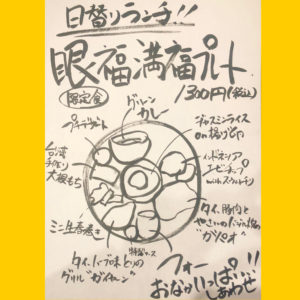 日替りランチ!!
眼福満福プレート
限定食
1300円(税込)
グリーン
カレー
プチデザート
ジャスミンライス
on 揚げ卵
台湾
手作り
大根もち
インドネシア
エビチップ
with スウィートチリ
ミニ生春巻き
特製ソース
タイ、豚肉と
やさいのバジル炒め
"ガパオ"
タイ、ハーブ味とりの
グリル"ガイヤーン"
フォー
おなかいっぱい!!
しあわせ